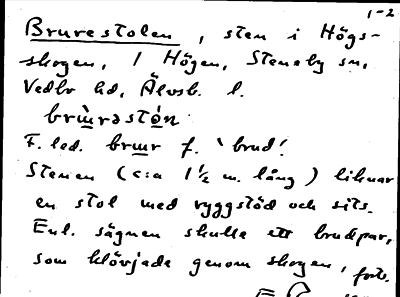 1-2
Bruvestolen, sten i Högs-
skogen, / Högen, Steneby sn,
Vedbo hd, Älvsb. l.
F. led. f. 'brud'.
Stenen (c:a 1½ m. lång) liknar
en stol med ryggstöd och sits.
Enl. sägnen skulle ett brudpar,
som klövjade genom skogen, forts.